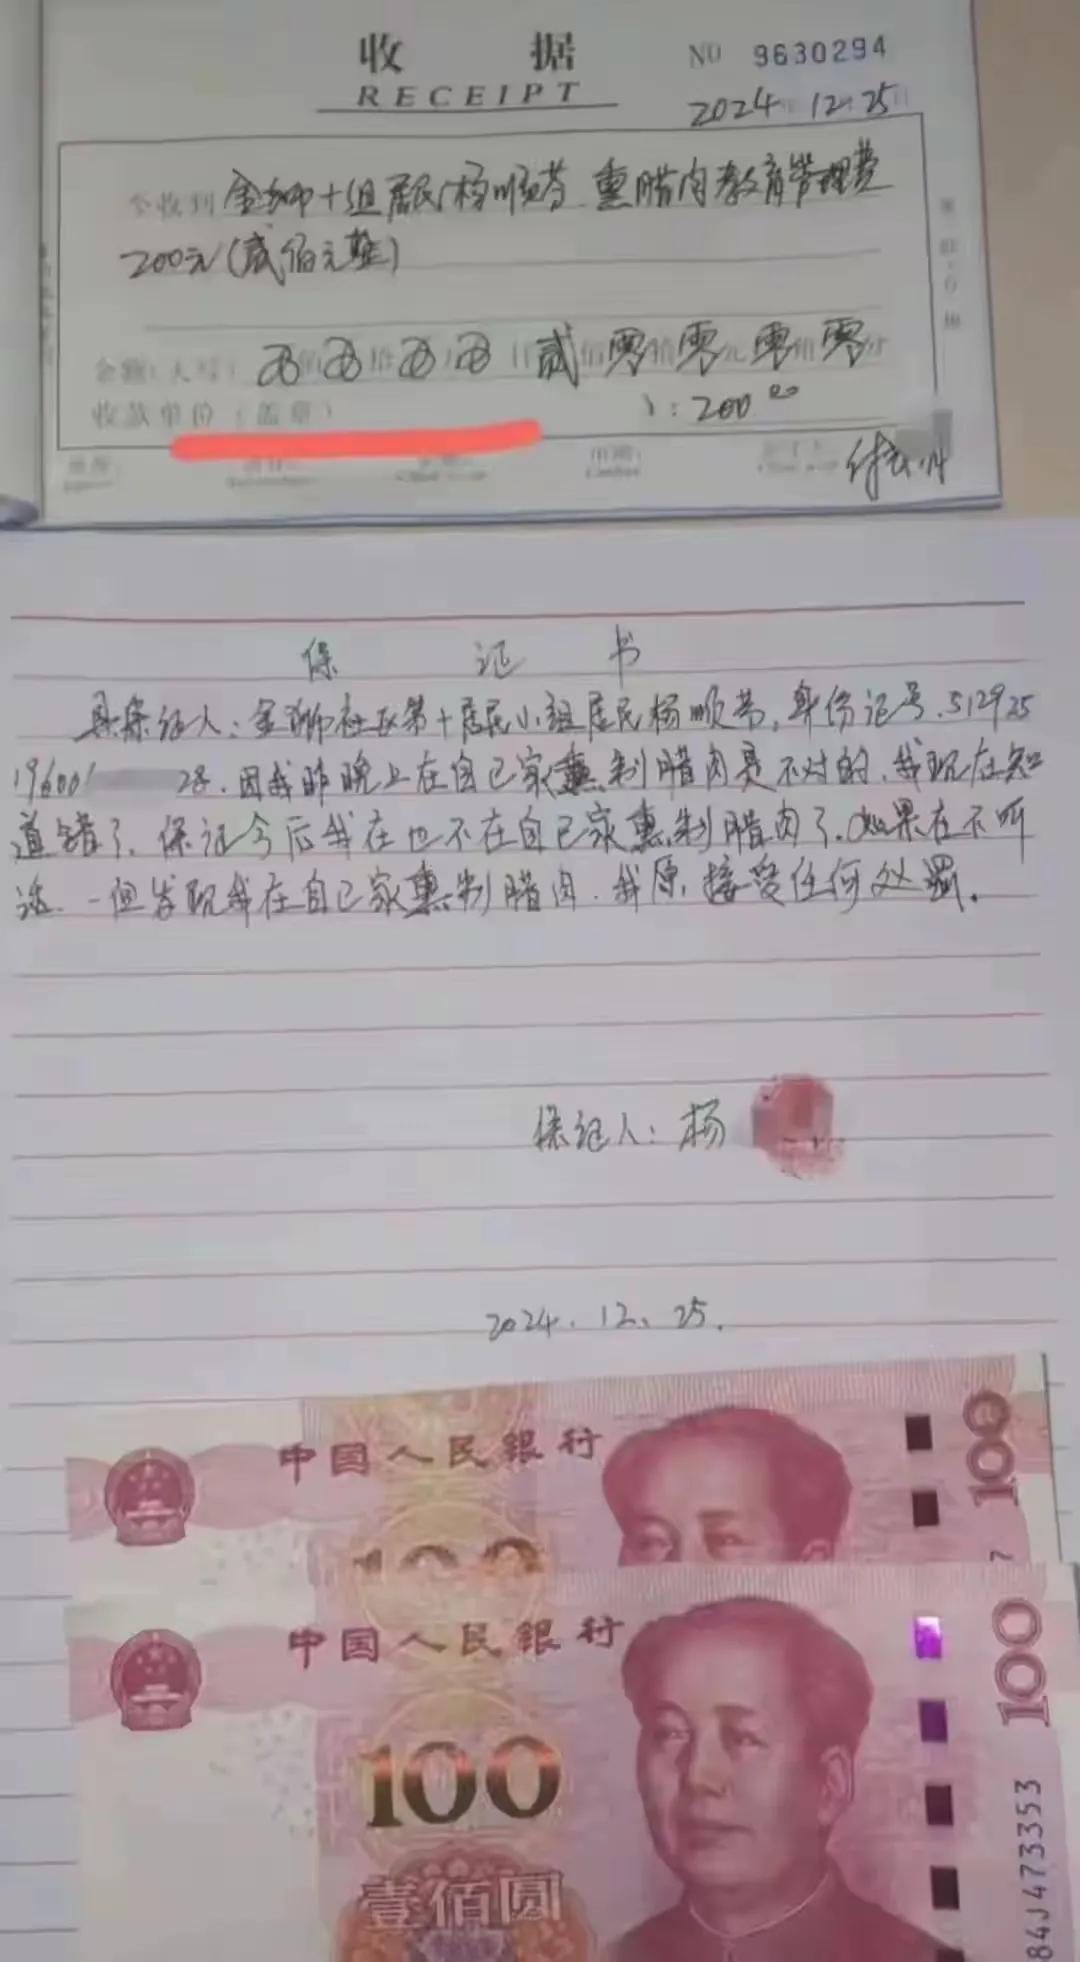 收 据
RECEIPT
NO 9630294
2024 12 25
今收到 金狮十组居民杨顺芳 熏腊肉教育管理费
200元(贰佰元整)
金额(大写) 佰 拾 仟 贰 佰 零 拾 零 元 零 角 零 分
收款单位(盖章)
): 200 00
付
保 证 书
具保证人:金狮社区第十居民小组居民杨顺芳,身份证号.512925
196001 28.因我昨晚上在自己家熏制腊肉是不对的,我现在知
道错了、保证今后我在也不在自己家熏制腊肉了.如果在不听
话、一但发现我在自己家熏制腊肉.我原接受任何处罰。
保证人:杨
2024.12、25.
中国人民銀行
100
100
中国人民銀行
100
100
壹佰圆
84J473353